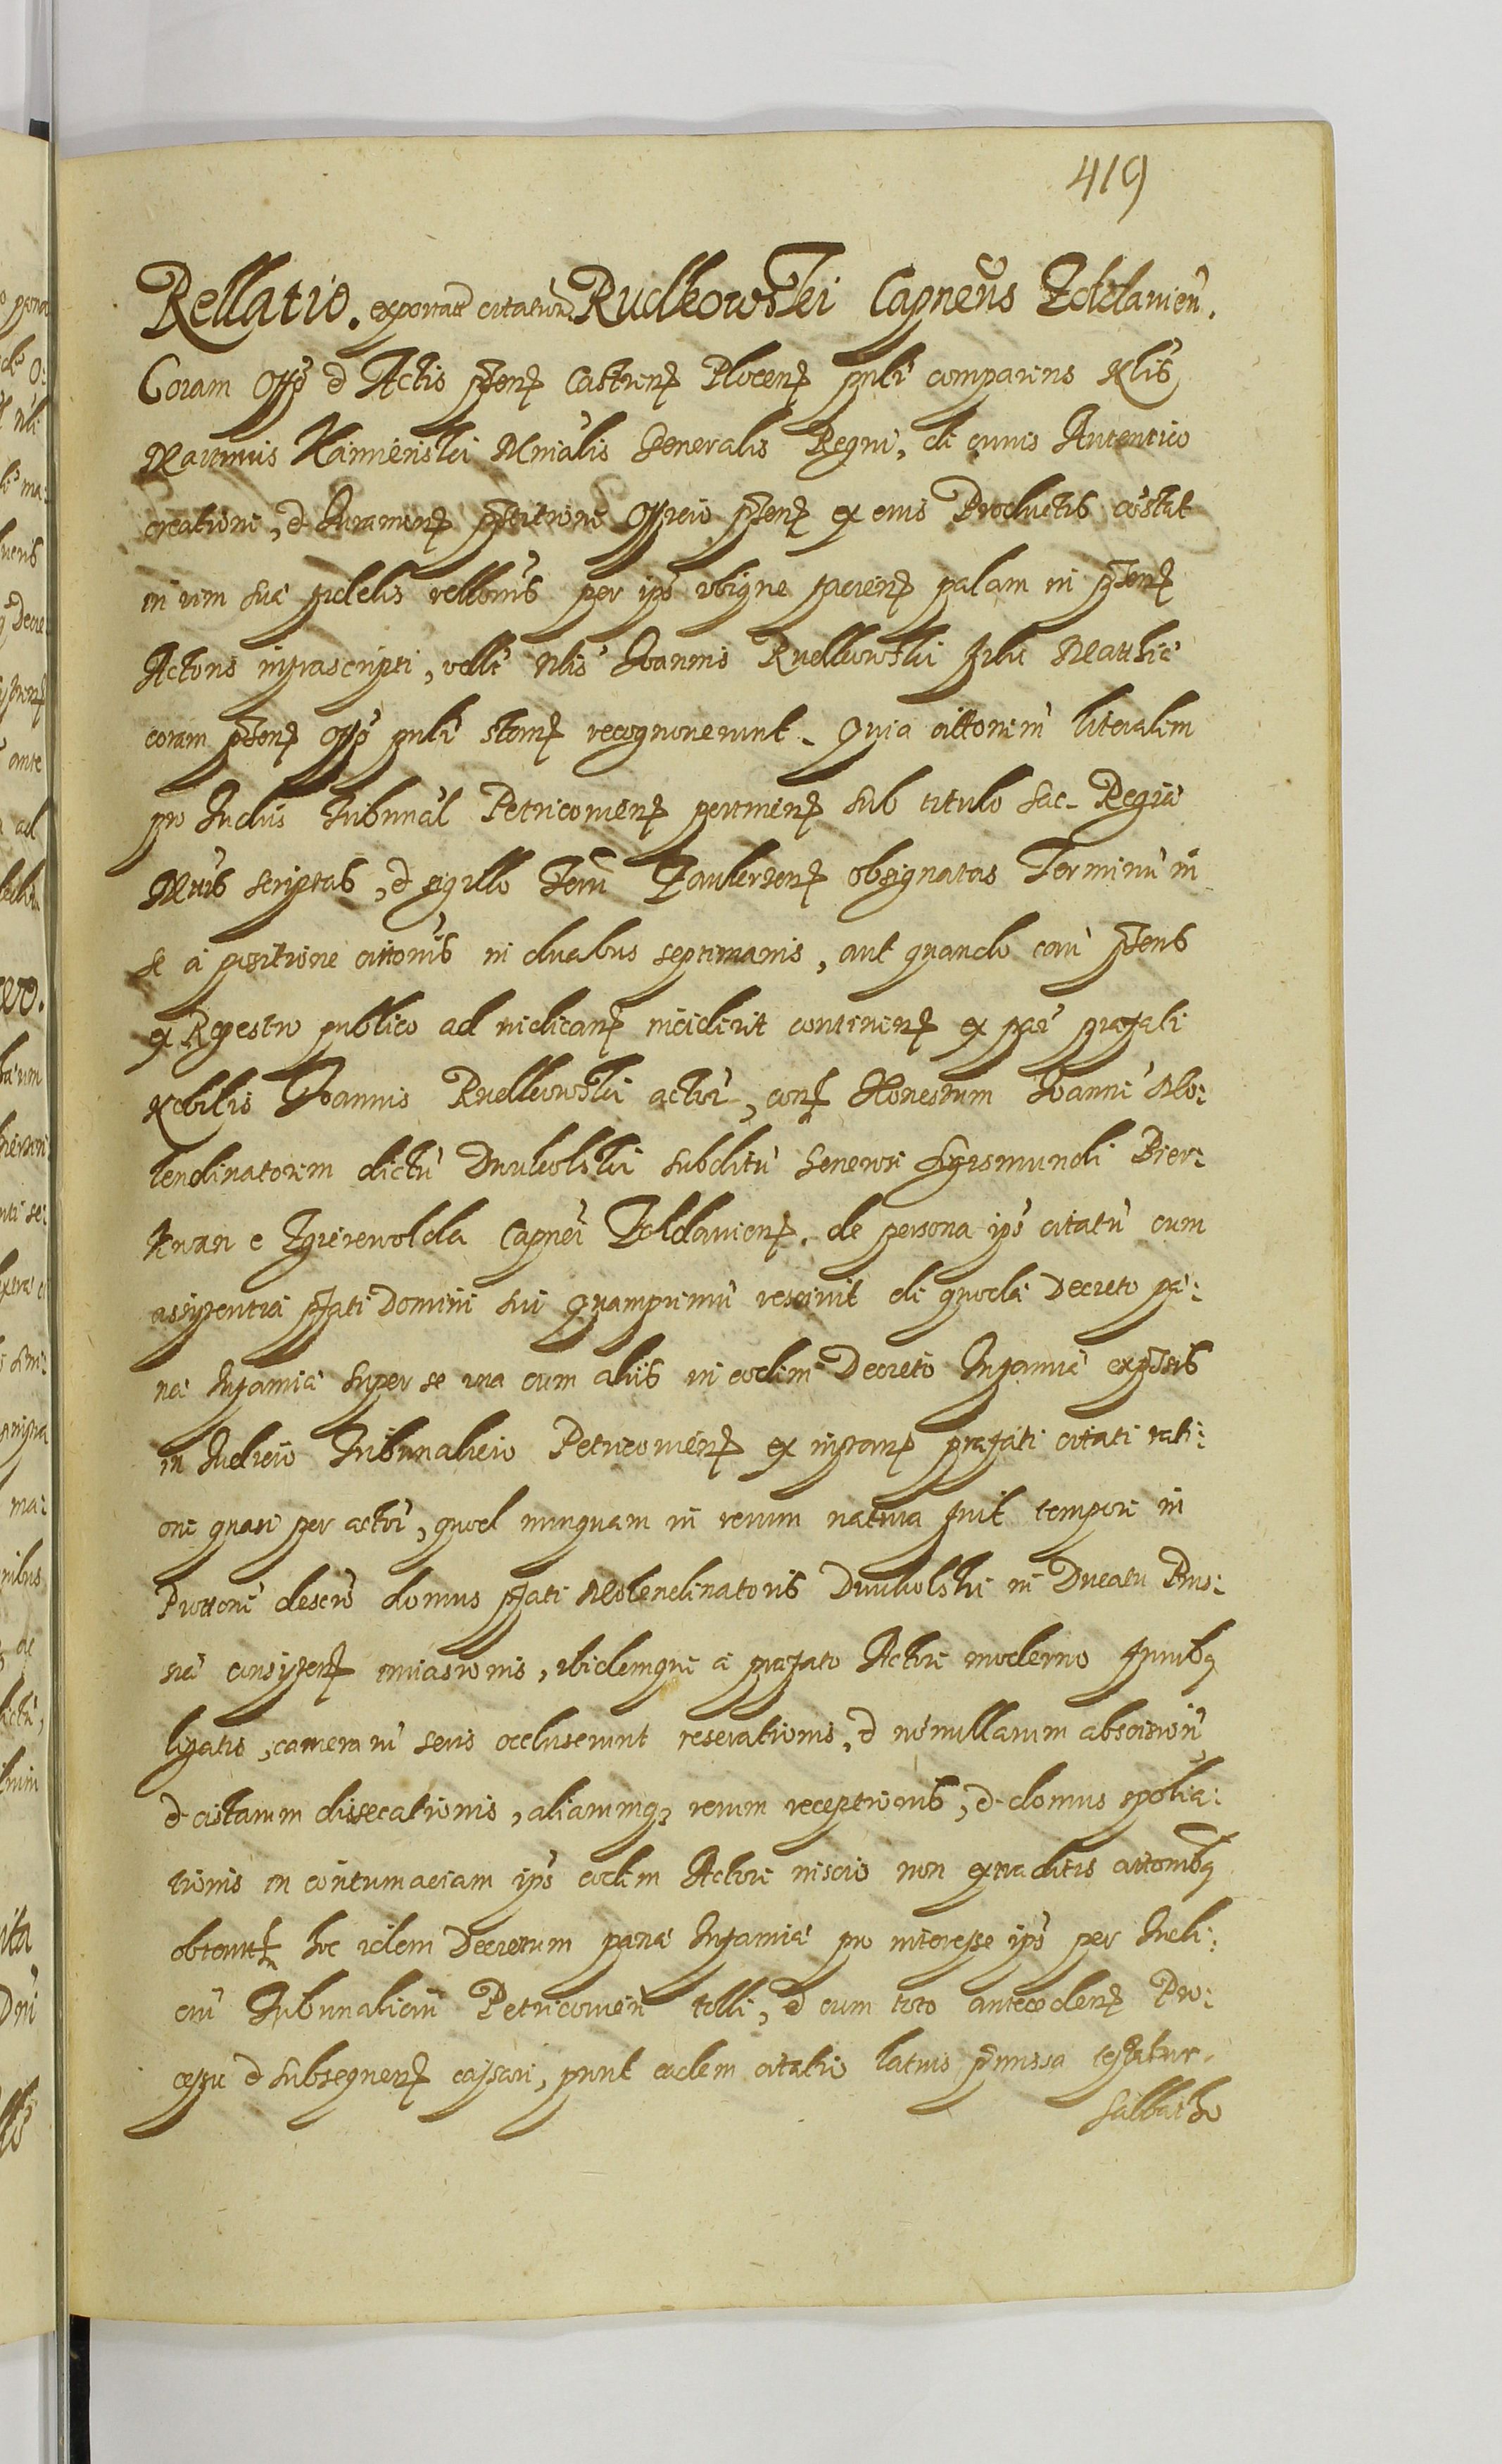 419
Rellatio. exportat citatur Rudkowski Capneus Zoldavieñ.
Coram offo et Actis pñtenȝ Castrenȝ Plocenȝ pnli comparens Nlis
Martinus Kaminski Mnialis Generalis Regni, de cuius Autentico
creatione, et Juramenȝ pstitione officio psenȝ ex eius Productis costat
in vim suæ fidelis rellonis per ips ubique facienȝ palam in psenȝ
Actoris infrascripti, velle Nlis Joannis Rudkowski filii Matthiæ
coram psenȝ offo pnli stanȝ recognoverunt. Quia cittonem literalem
pro Judiis Tribunal Petricovienȝ pertinenȝ sub titulo Sac. Regiæ
Mtis scriptas, et sigillo Terrū Zawkrzenȝ obsignatas Terminū in
se a positione cittonis in duabus septimanis, aut quando cau psens
ex Regestro publico ad iudicanȝ inciderit continenȝ ex par præfati
Nobilis Joannis Rudkowski actor, conȝ Honestum Joanne Mo:
lendinatorem dictū Drwkolski subditū Generosi Sigismundi Bier:
knan e Zgierewolda Capnei Zoldavienȝ. de persona ips citatū cum
assistentia pfati Domini sui Quamprimū rescivit de quoda Decreto pæ:
næ Infamiæ super se una cum aliis in eodem Decreto Infamiæ expssis
in Judicio Tribunalicio Petricovienȝ ex instanȝ præfati citati rati:
one quasi per actor, quod nunquam in rerum natura fuit tempore in
Prottone descr domus pfati Molendinatoris Drwkolski in Ducatu Prus:
siæ consistenȝ invasionis, ibidemque a præfato Actore moderno funibȝ
ligatis, camerarū seris occluserunt reserationis, et nonullarum abscision
et cistarum dissecationis, aliarumqȝ rerum receptionis, et domus spolia:
tionis in contumaciam ips eodem Actore nescio non extraditis cittonibȝ
obtentȝ hoc idem Decretum pænæ Infamiæ pro interesse ips per Judi:
ciū Tribunaliciū Petricovieñ tolli, et cum toto antecedenȝ Pro:
cessu et subsequenȝ cassari, prout eadem citatio latius pmissa testatur.
Sabbatho